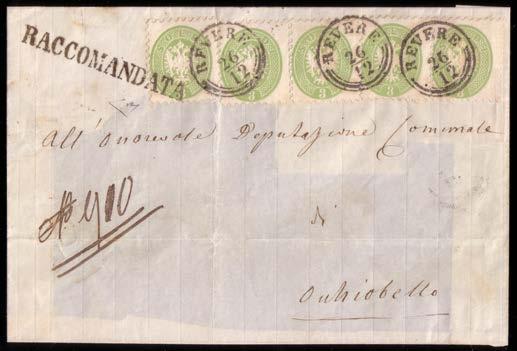 RACCOMANDATA
REVERE
26
12
REVERE
26
12
REVERE
26
12
3
3
3
3
3
All'Onorevole Deputazione Comunale
N. 910
di
Occhiobello